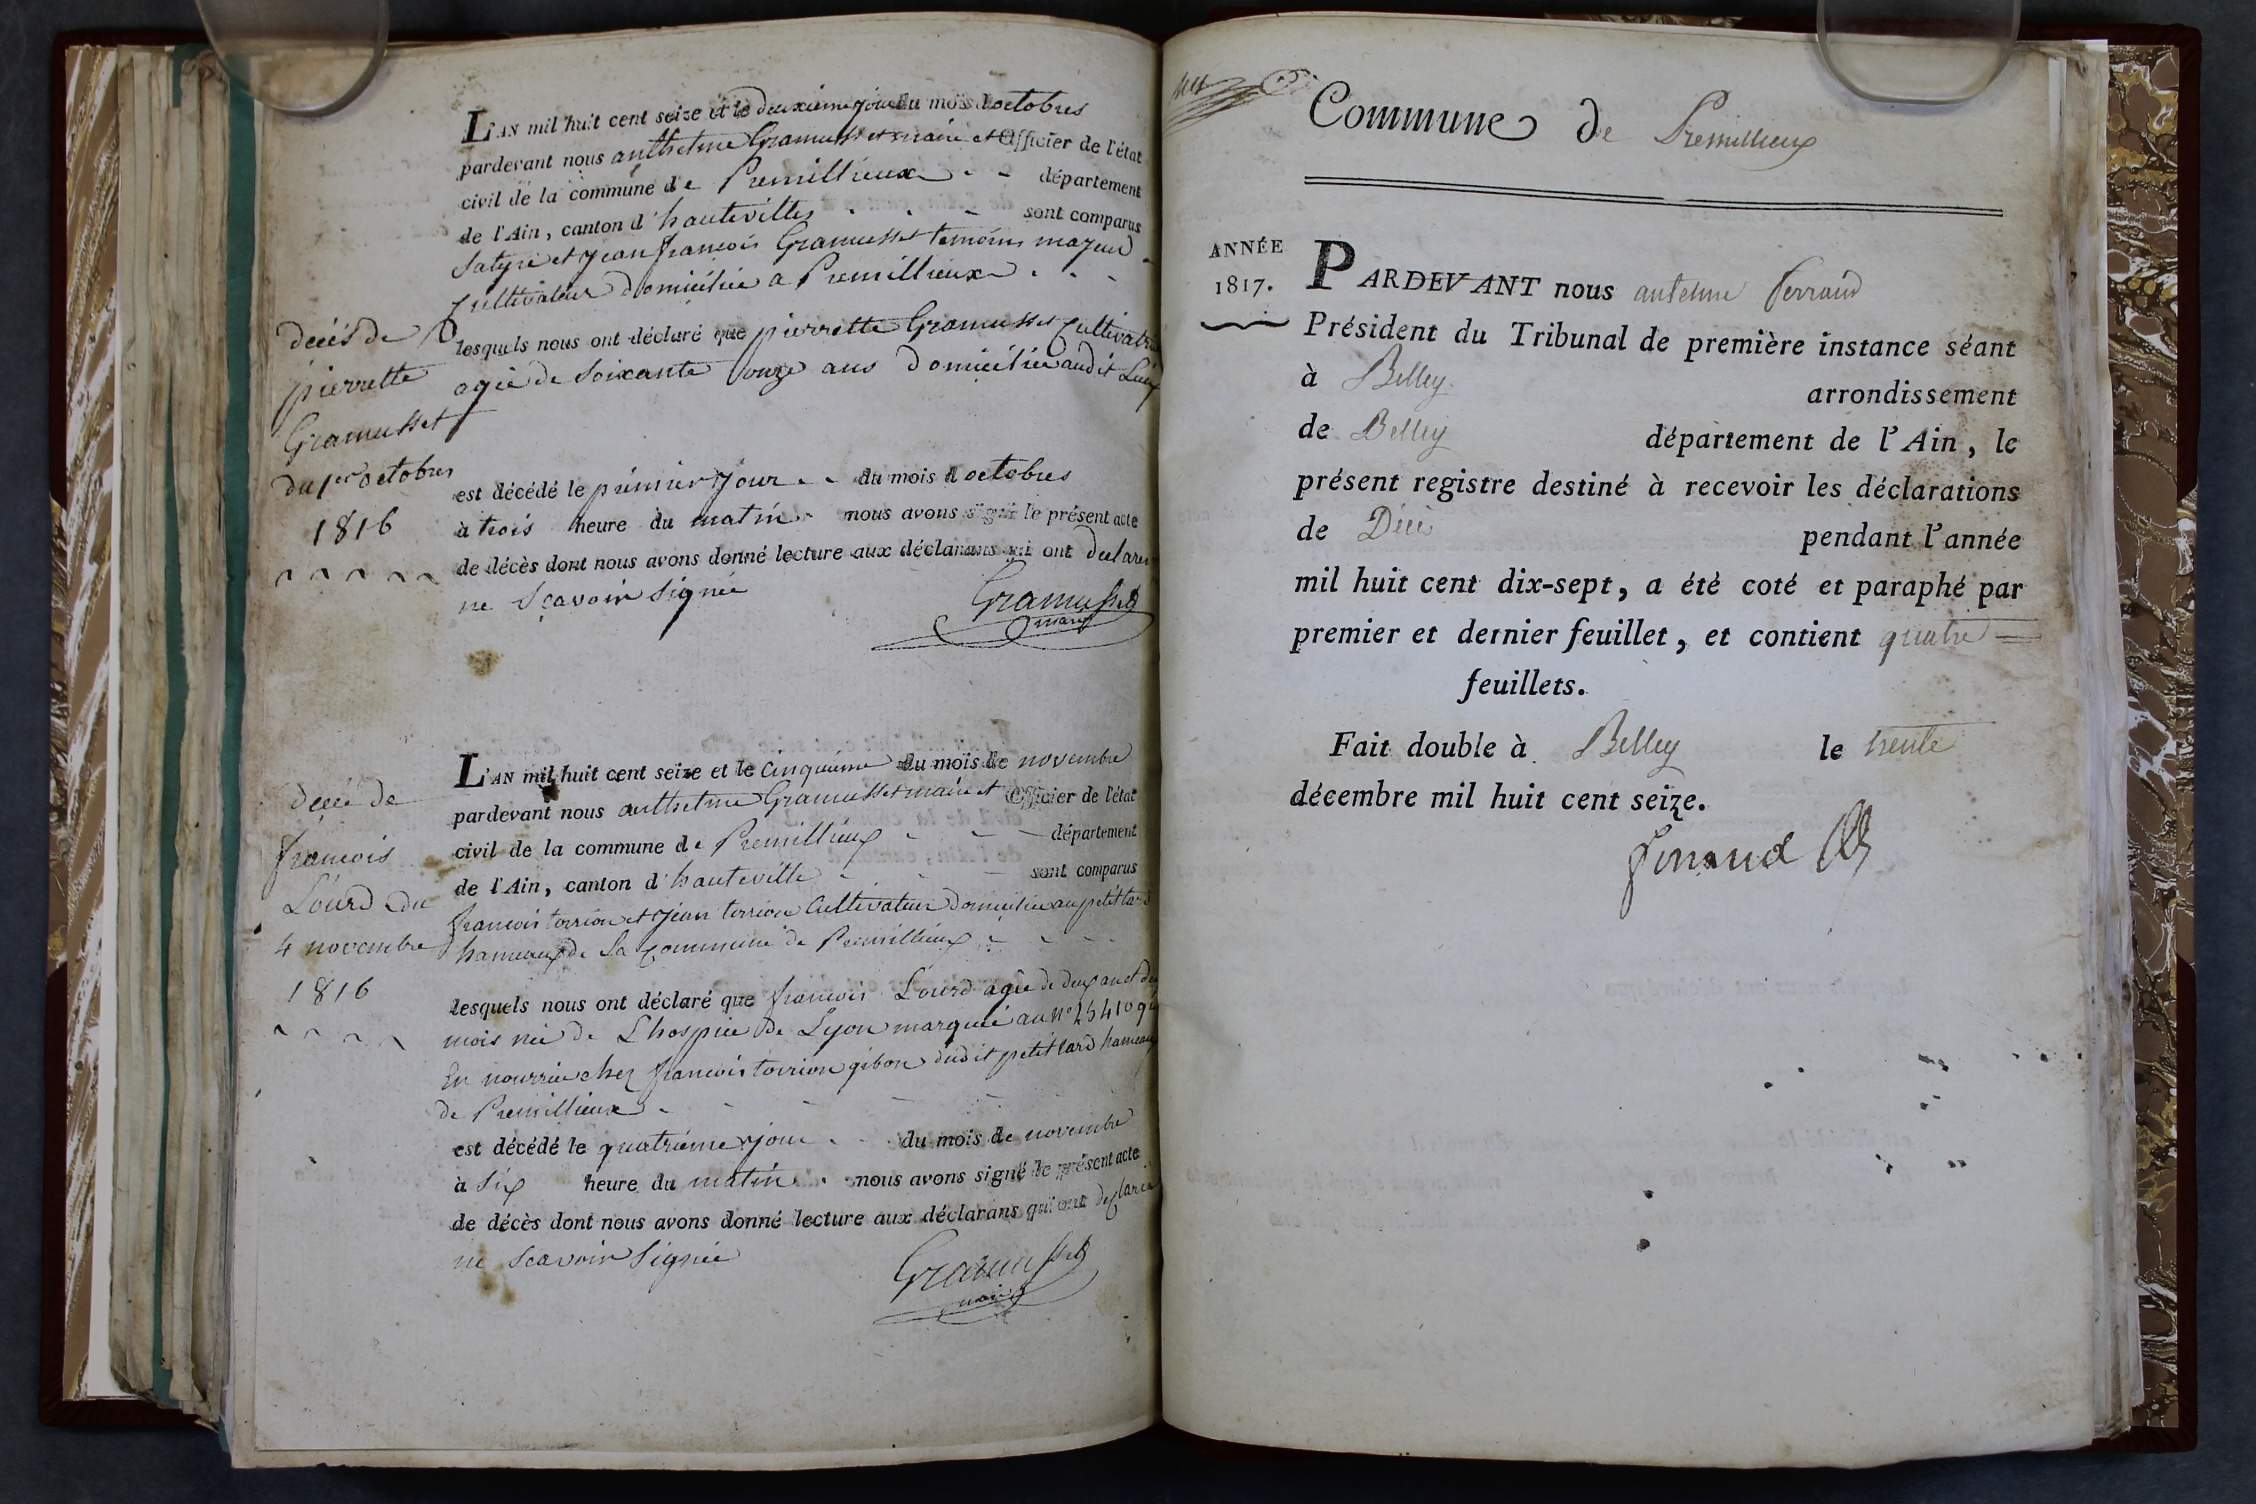 L'AN mil huit cent seize et le deuxieme jour du mois d octobres
pardevant nous anthelme Gramusset maire et Officier de l'état
civil de la commune de Premillieux département
de l'Ain, canton d'hautevilles sont comparus
Satyre et jean francois Gramusset temoins majeur
Cultivateur domiciliée a Premillieux
lesquels nous ont déclaré que pierrette Gramusset Cultivatri
agée de soixante onze ans Domiciliée audit Lieux
est décédé le prémier jour du mois d octobres
à trois heure du matin nous avons signé le présent acte
de décès dont nous avons donné lecture aux déclarans qui ont declarer
ne Scavoir Signée
Gramusset
maire
decés de
pierrette
Gramusset
du 1er octobres
1816
L'AN mil huit cent seize et le Cinquieme du mois de novembre
pardevant nous anthelme Gramusset maire et Officier de l'état
civil de la commune de Premillieux département
de l'Ain, canton d'hauteville sont comparus
francois torrion et jean torrion Cultivateur Domiciliée au petit lard
hameaux de La Commune de Premillieux
lesquels nous ont déclaré que francois Lourd agée de deux an et
mois née de Lhospice de Lyon marquée au N°
En nourrice chez francois torrion gibon dudit petit lard hameaux
de Premillieux
est décédé le quatriéme jour du mois de novembre
à Six heure du matin nous avons signé le présent acte
de décès dont nous avons donné lecture aux déclarans qui ont declarée
ne Scavoir Signée
Gramusset
maire
decé de
francois
Lourd du
4 novembre
1816
Commune de Premillieux
ANNÉE
1817.
PARDEVANT nous antelme Ferrand
Président du Tribunal de première instance séant
à Belley arrondissement
de Belley département de l'Ain, le
présent registre destiné à recevoir les déclarations
de Décès pendant l'année
mil huit cent dix-sept, a été coté et paraphé par
premier et dernier feuillet, et contient quatre
feuillets.
Fait double à Belley le trente
décembre mil huit cent seize.
Ferrand